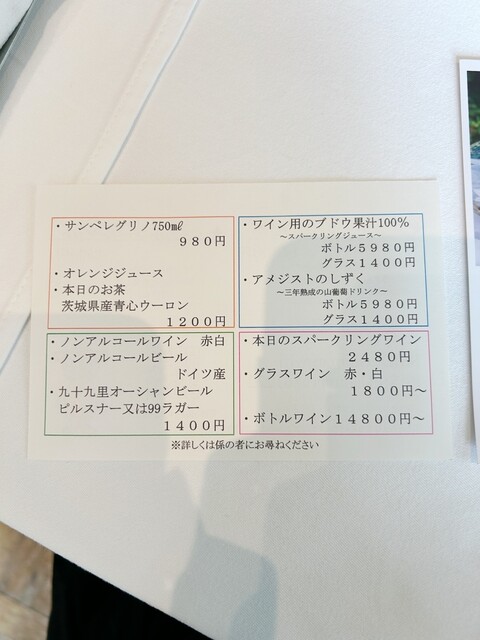 ・サンペレグリノ750㎖
９８０円
・オレンジジュース
・本日のお茶
茨城県産青心ウーロン
１２００円
・ワイン用のブドウ果汁100％
～スパークリングジュース～
ボトル５９８０円
グラス１４００円
・アメジストのしずく
～三年熟成の山葡萄ドリンク～
ボトル５９８０円
グラス１４００円
・ノンアルコールワイン　赤白
・ノンアルコールビール
ドイツ産
・九十九里オーシャンビール
ピルスナー又は99ラガー
１４００円
・本日のスパークリングワイン
２４８０円
・グラスワイン　赤・白
１８００円～
・ボトルワイン１４８００円～
※詳しくは係の者にお尋ねください